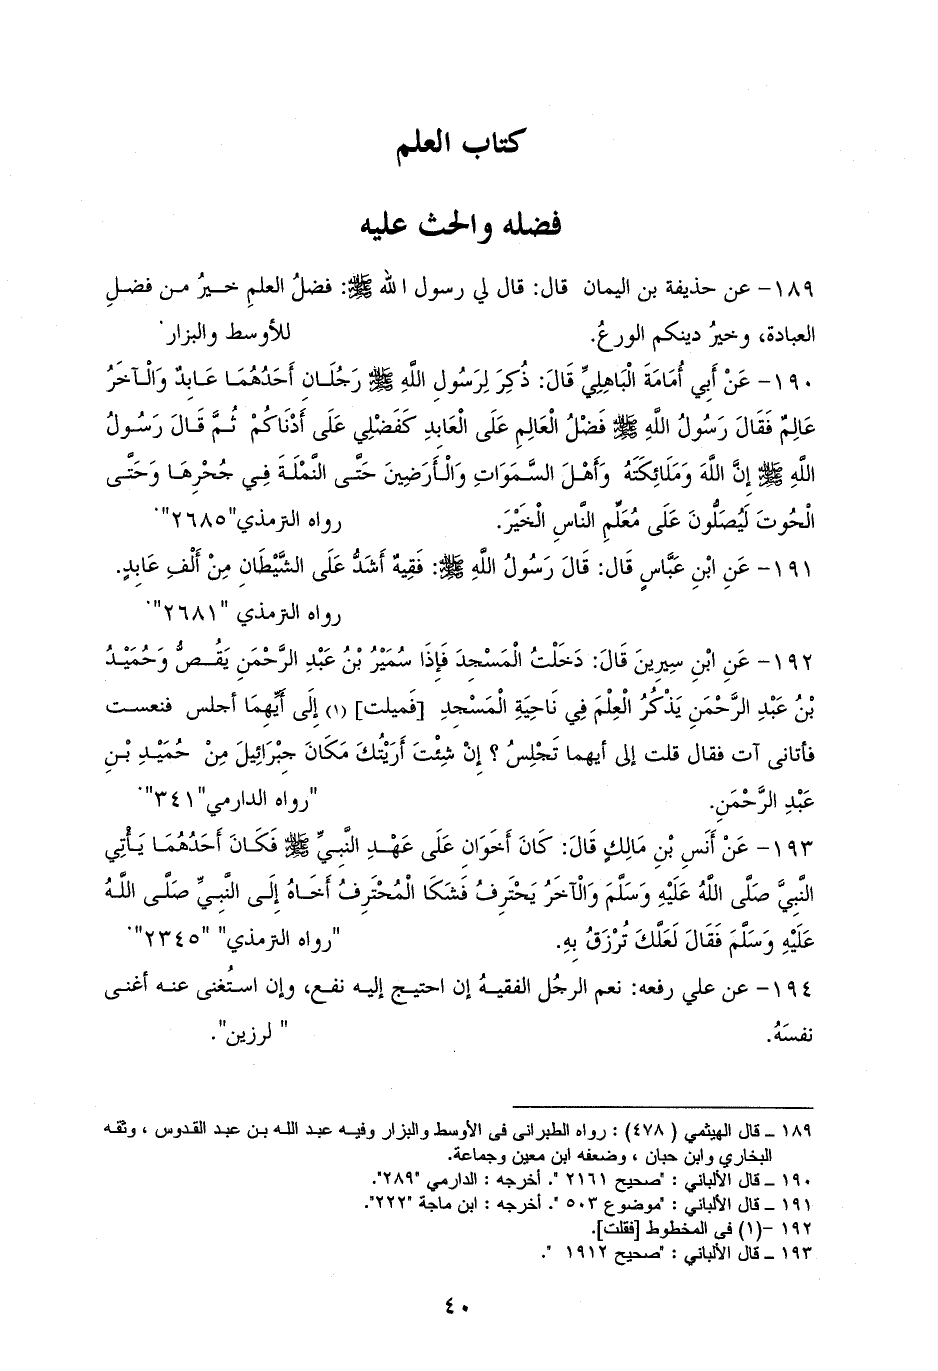 كتاب العلم
فضله والحث عليه
١٨٩- عن حذيفة بن اليمان قال: قال لي رسول الله ﷺ: فضلُ العلمِ خيرُ من فضلِ
العبادة، وخيرُ دينكم الورعُ. للأوسط والبزار.
١٩٠- عَنْ أَبِي أُمَامَةَ الْبَاهِلِيِّ قَالَ: ذُكِرَ لِرَسُولِ اللَّهِ ﷺ رَجُلَانِ أَحَدُهُمَا عَابِدٌ وَالْآخَرُ
عَالِمٌ فَقَالَ رَسُولُ اللَّهِ ﷺ فَضْلُ الْعَالِمِ عَلَى الْعَابِدِ كَفَضْلِي عَلَى أَدْنَاكُمْ ثُمَّ قَالَ رَسُولُ
اللَّهِ ﷺ إِنَّ اللَّهَ وَمَلَائِكَتَهُ وَأَهْلَ السَّمَوَاتِ وَالْأَرَضِينَ حَتَّى النَّمْلَةَ فِي جُحْرِهَا وَحَتَّى
الْحُوتَ لَيُصَلُّونَ عَلَى مُعَلِّمِ النَّاسِ الْخَيْرَ. رواه الترمذي"٢٦٨٥".
١٩١- عَنِ ابْنِ عَبَّاسٍ قَالَ: قَالَ رَسُولُ اللَّهِ ﷺ: فَقِيهٌ أَشَدُّ عَلَى الشَّيْطَانِ مِنْ أَلْفِ عَابِدٍ.
رواه الترمذي "٢٦٨١".
١٩٢- عَنِ ابْنِ سِيرِينَ قَالَ: دَخَلْتُ الْمَسْجِدَ فَإِذَا سُمَيْرُ بْنُ عَبْدِ الرَّحْمَنِ يَقُصُّ وَحُمَيْدُ
بْنُ عَبْدِ الرَّحْمَنِ يَذْكُرُ الْعِلْمَ فِي نَاحِيَةِ الْمَسْجِدِ [فَميلت] (١) إِلَى أَيِّهِمَا أجلس فنعست
فأتانى آت فقال قلت إلى أيهما تَجْلِسُ ؟ إِنْ شِئْتَ أَرَيْتُكَ مَكَانَ جِبْرَائِيلَ مِنْ حُمَيْدِ بْنِ
عَبْدِ الرَّحْمَنِ. "رواه الدارمي"٣٤١".
١٩٣- عَنْ أَنَسِ بْنِ مَالِكٍ قَالَ: كَانَ أَخَوَانِ عَلَى عَهْدِ النَّبِيِّ ﷺ فَكَانَ أَحَدُهُمَا يَأْتِي
النَّبِيَّ صَلَّى اللَّهُ عَلَيْهِ وَسَلَّمَ وَالْآخَرُ يَحْتَرِفُ فَشَكَا الْمُحْتَرِفُ أَخَاهُ إِلَى النَّبِيِّ صَلَّى اللَّهُ
عَلَيْهِ وَسَلَّمَ فَقَالَ لَعَلَّكَ تُرْزَقُ بِهِ. "رواه الترمذي" "٢٣٤٥".
١٩٤- عن علي رفعه: نعم الرجُل الفقيهُ إن احتيج إليه نفع، وإن استُغنى عنه أغنى
نفسَهُ. " لرزين".
١٨٩ ـ قال الهيثمي ( ٤٧٨) : رواه الطبرانى فى الأوسط والبزار وفيه عبد الله بن عبد القدوس ، وثقه
البخاري وابن حبان ، وضعفه ابن معين وجماعة.
١٩٠ ـ قال الألباني : "صحيح ٢١٦١ ". أخرجه : الدارمي "٢٨٩".
١٩١ ـ قال الألباني : "موضوع ٥٠٣ ". أخرجه : ابن ماجة "٢٢٢".
١٩٢ -(١) فى المخطوط [فقلت].
١٩٣ ـ قال الألباني : "صحيح ١٩١٢ ".
٤٠